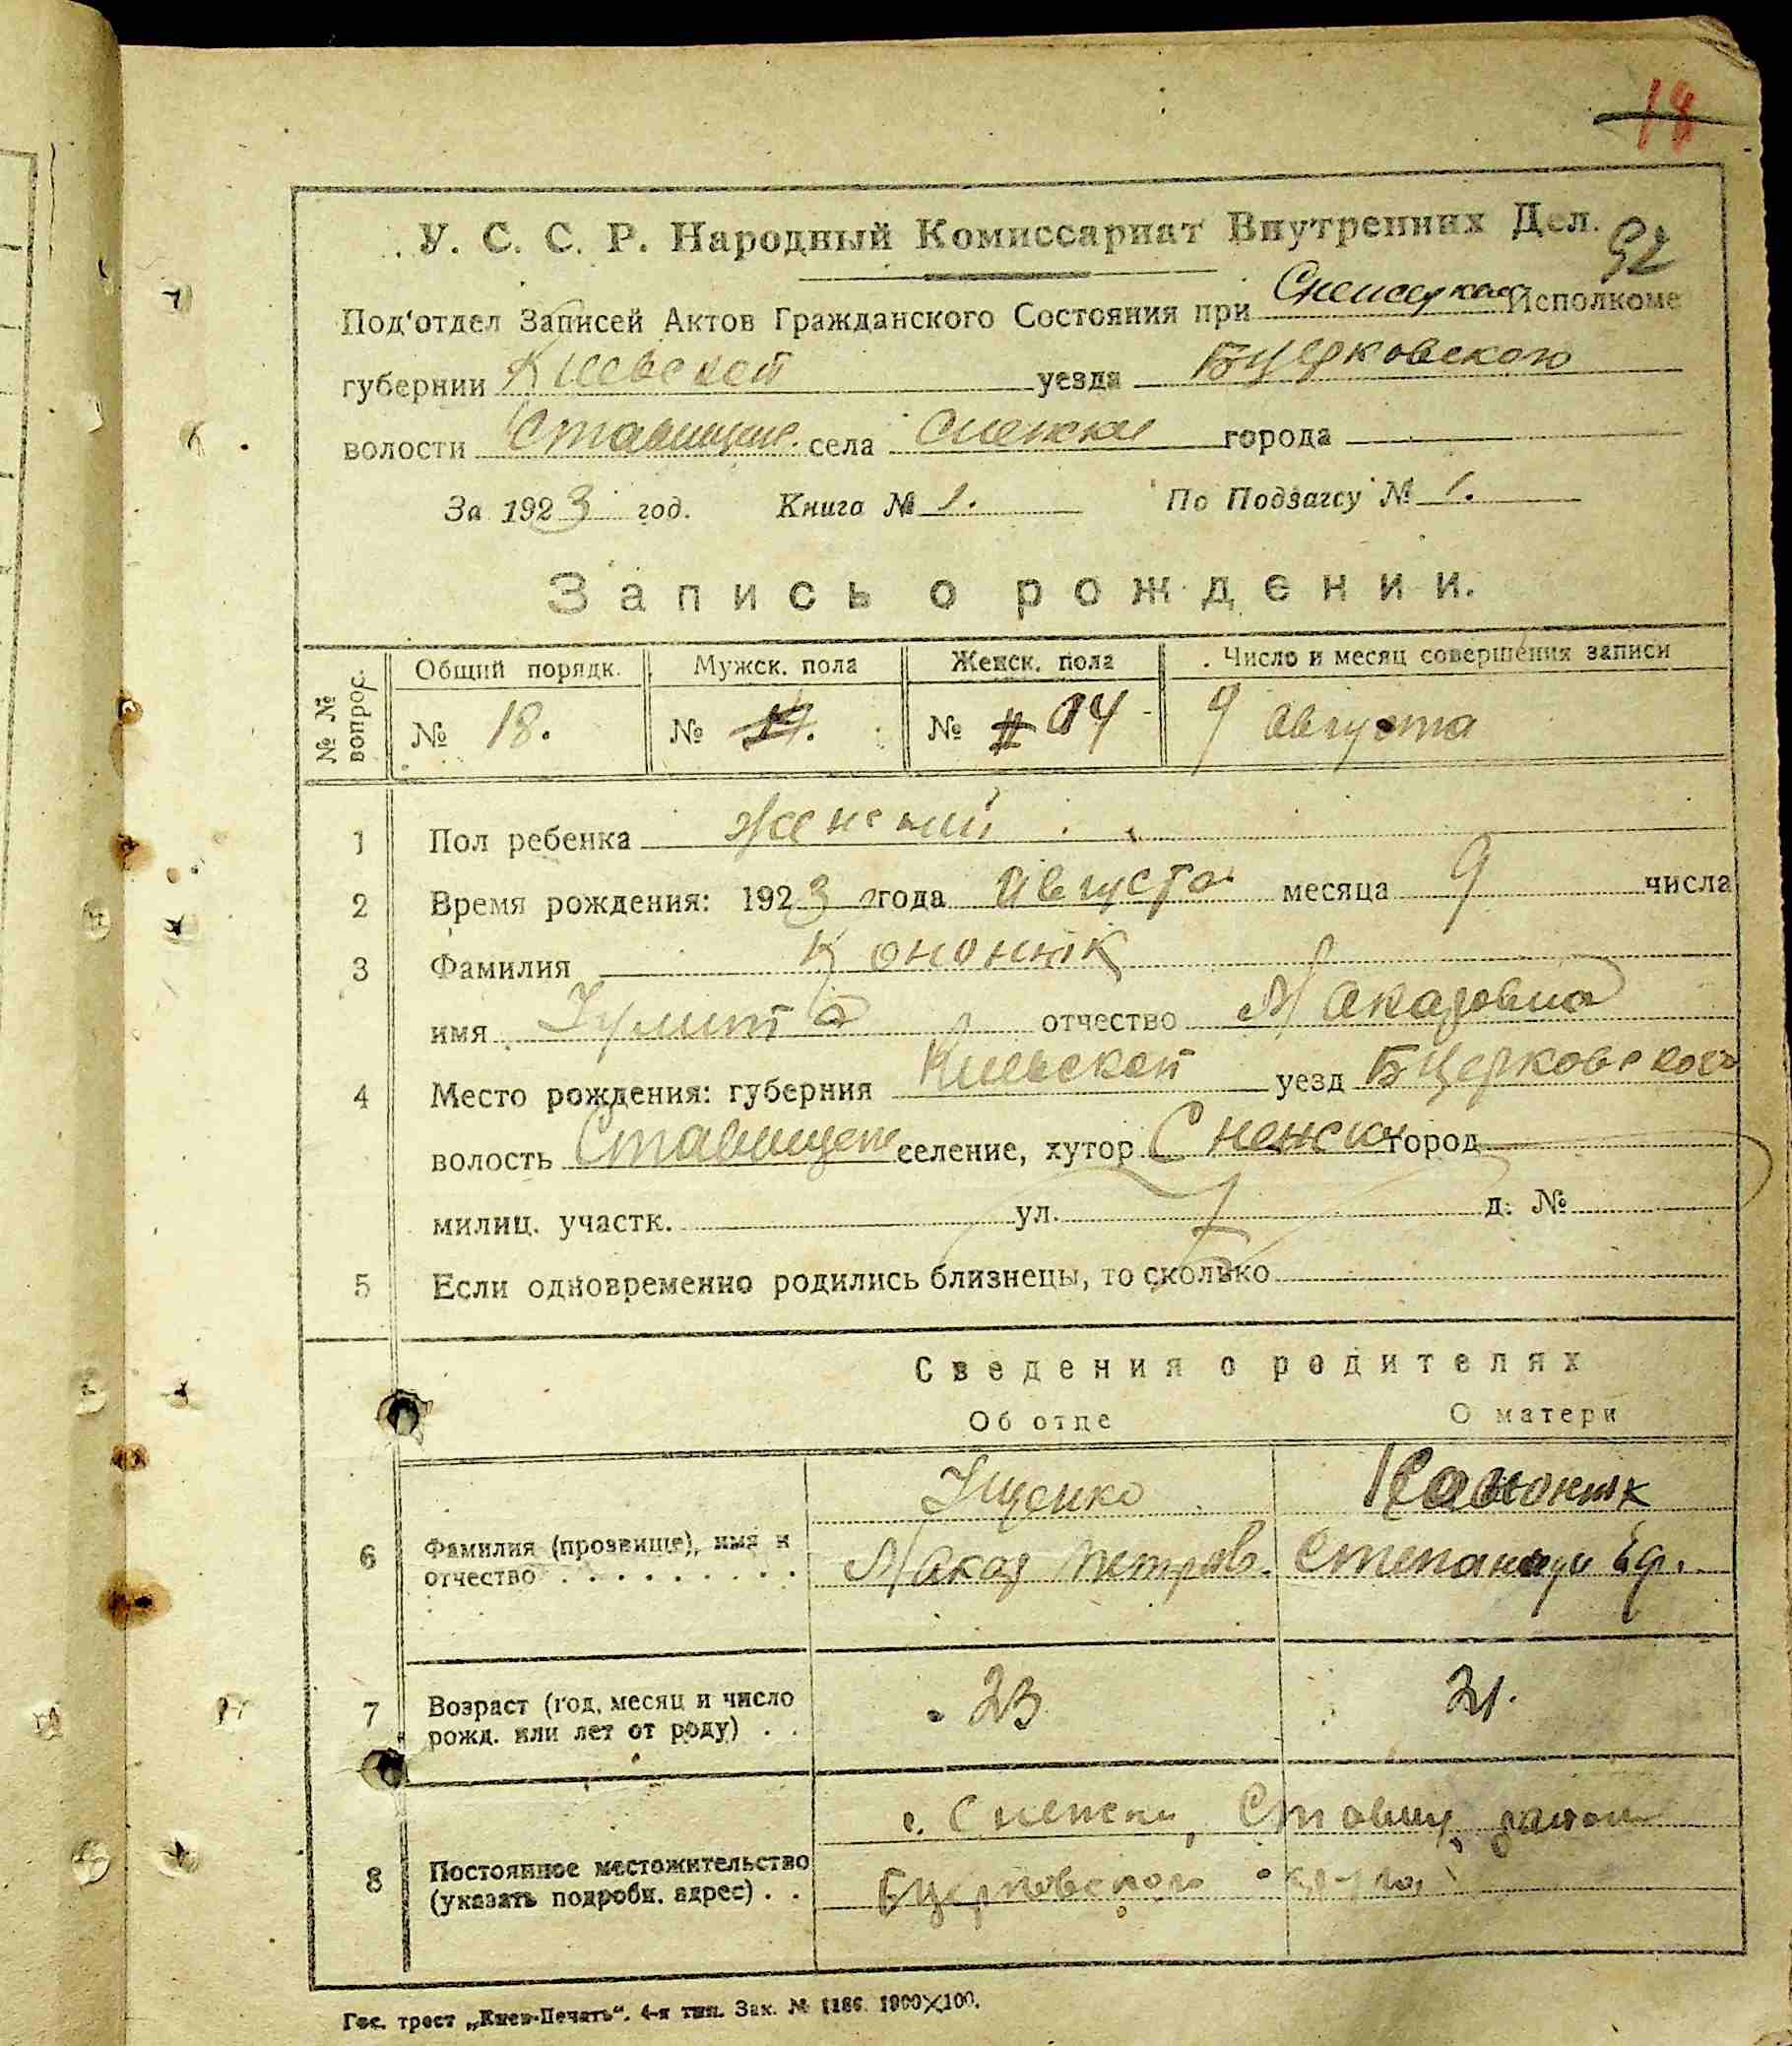 18
У. С. С. Р. Народный Комиссариат Внутренних Дел.
92
Под'отдел Записей Актов Гражданского Состояния при Исполкоме
губернии Киевской уезда БЦерковского
волости Ставищен. села Снежки города
За 1923 год. Книга № 1. По Подзагсу № 1.
Запись о рождении.
№ № вопрос. Общий порядк. Мужск. пола Женск. пола Число и месяц совершения записи
№ 18. № № 14 9 августа
1 Пол ребенка женский
2 Время рождения: 1923 года Августа месяца 9 числа
3 Фамилия Кононюк
имя Улита отчество Макаровна
4 Место рождения: губерния Киевской уезд БЦерковского
волость Ставищен селение, хутор Снежки город
милиц. участк. ул. д. №
5 Если одновременно родились близнецы, то сколько
Сведения о родителях
Об отце О матери
Ищенко Кононюк
6 Фамилия (прозвище), имя и
отчество . . . . . . . . . Макар Петров. Степанида Еф.
7 Возраст (год, месяц и число
рожд. или лет от роду) . . 23 21.
с. Снежки, Ставищ. район
8 Постоянное местожительство
(указать подробн. адрес) . . БЦерковского округа
Гос. трест „Киев-Печать“. 4-я тип. Зак. № 1186. 1000×100.